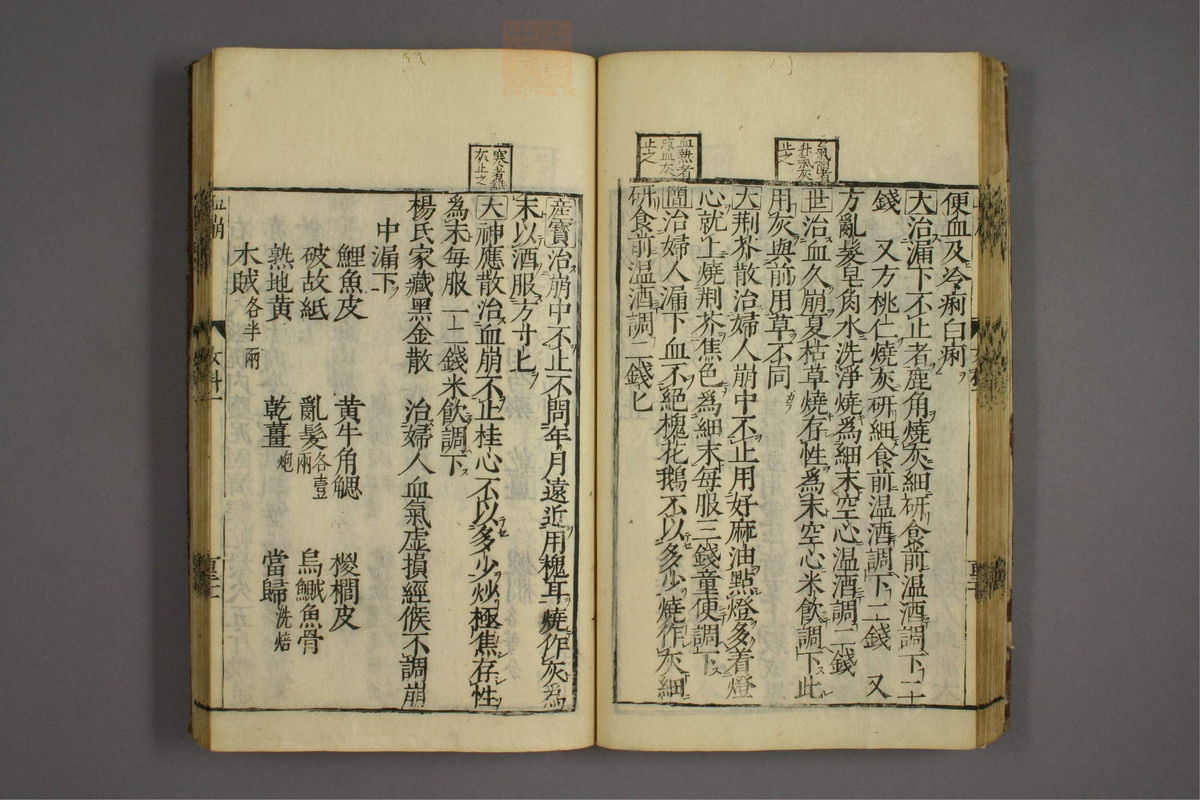 便血及冷痢白痢
大治漏下不止者鹿角燒灰細研食前温酒調下二
錢 又方桃仁燒灰研細食前温酒調下二錢 又
方亂髮皂角水洗淨燒為細末空心温酒調二錢
世治血久崩夏枯草燒存性為末空心米飲調下此
用灰與前用草不同
大荆芥散治婦人崩中不止用好麻油點燈多着燈
心就上燒荆芥焦色為細末每服三錢童便調下
簡治婦人漏下血不絕槐花鵝不以多少燒作灰細
研食前温酒調二錢匕
止之
血熱者
凉血灰
止之
産寶治崩中不止不問年月遠近用槐耳燒作灰為
末以酒服方寸匕
大神應散治血崩不止桂心不以多少炒極焦存性
為末每服一二錢米飲調下
楊氏家藏黑金散 治婦人血氣虛損經候不調崩
中漏下
鯉魚皮 黄牛角䚡 椶櫚皮
破故紙 亂髮各壹兩 烏鰂魚骨
熟地黄 乾薑炮 當歸洗焙
木賊各半兩
寒者熱
灰止之
血崩
女科一